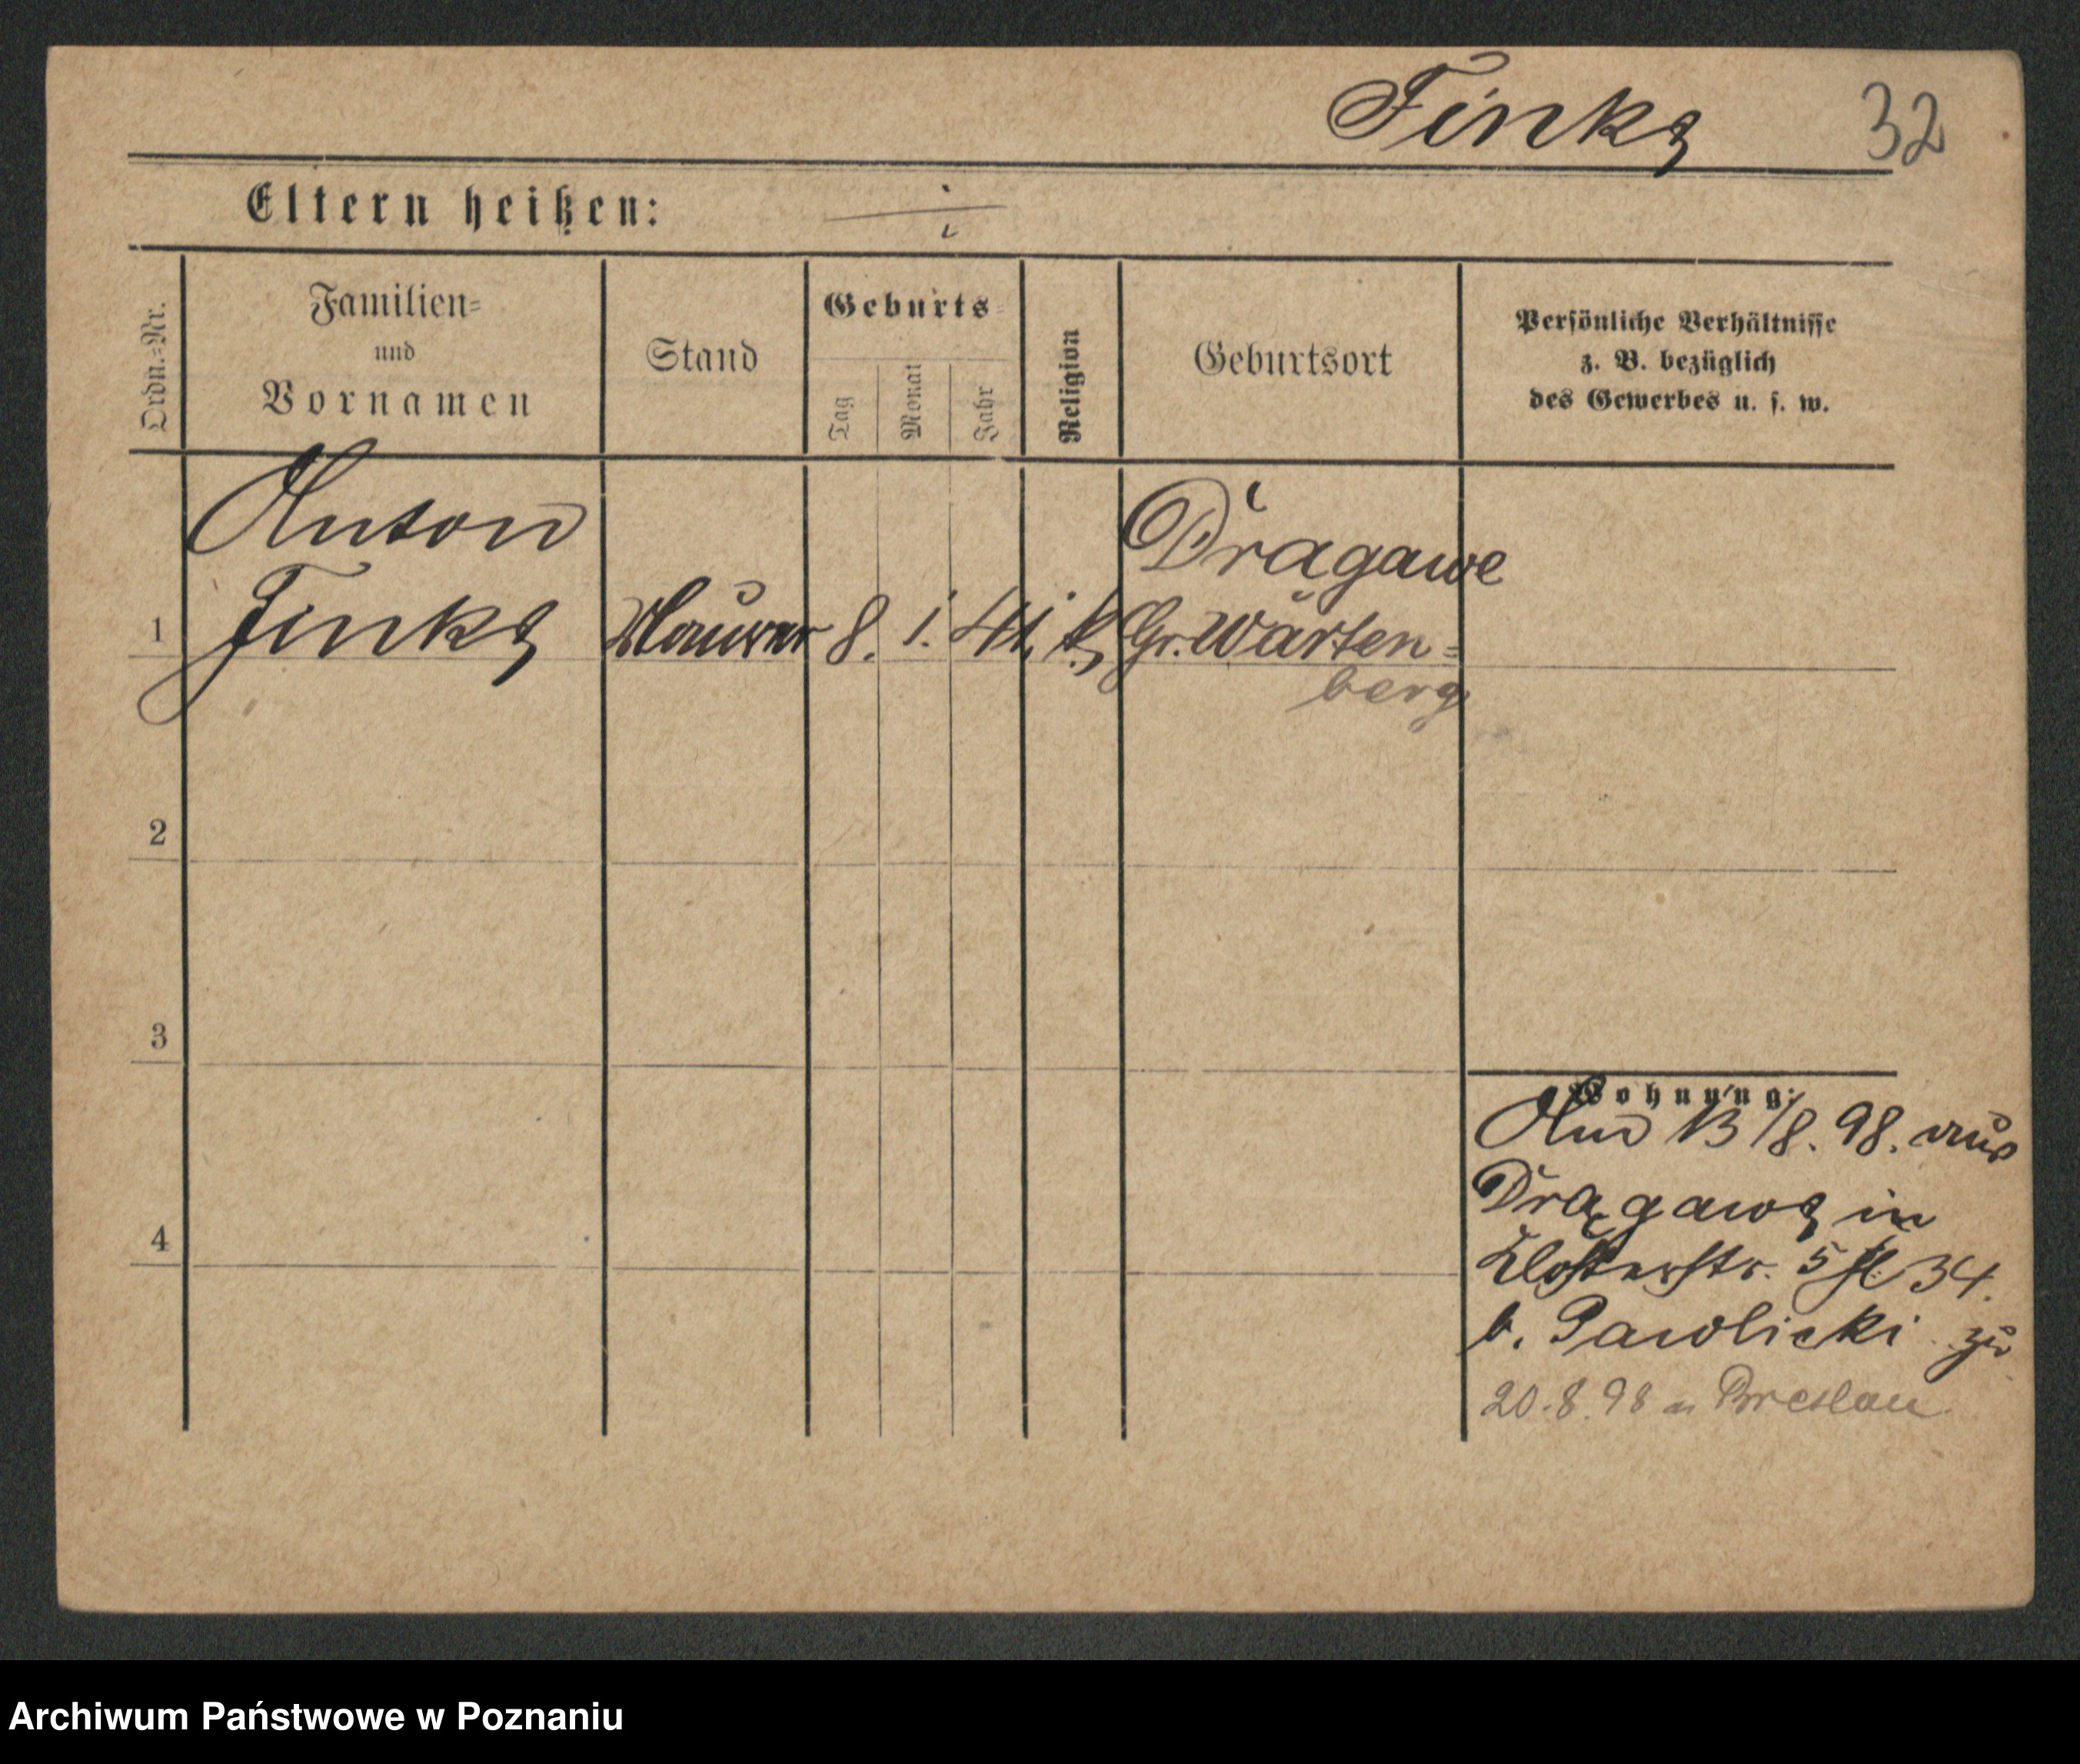 Finke 32
Eltern heißen:
Ordn.=Nr.
Familien=
und
Vornamen
Stand
Geburts=
Tag
Monat
Jahr
Religion
Geburtsort
Persönliche Verhältnisse
z. B. bezüglich
des Gewerbes u. s. w.
Anton Dragawe
1 Finke Maurer 8. 1. 41. k. Gr. Warten=
berg
2
3
Wohnung:
Am 13/8. 98. aus
Dragawe in
4
Klosterstr. 5 34.
b. Pawlicki zu
20.8.98 n Breslau
Archiwum Państwowe w Poznaniu